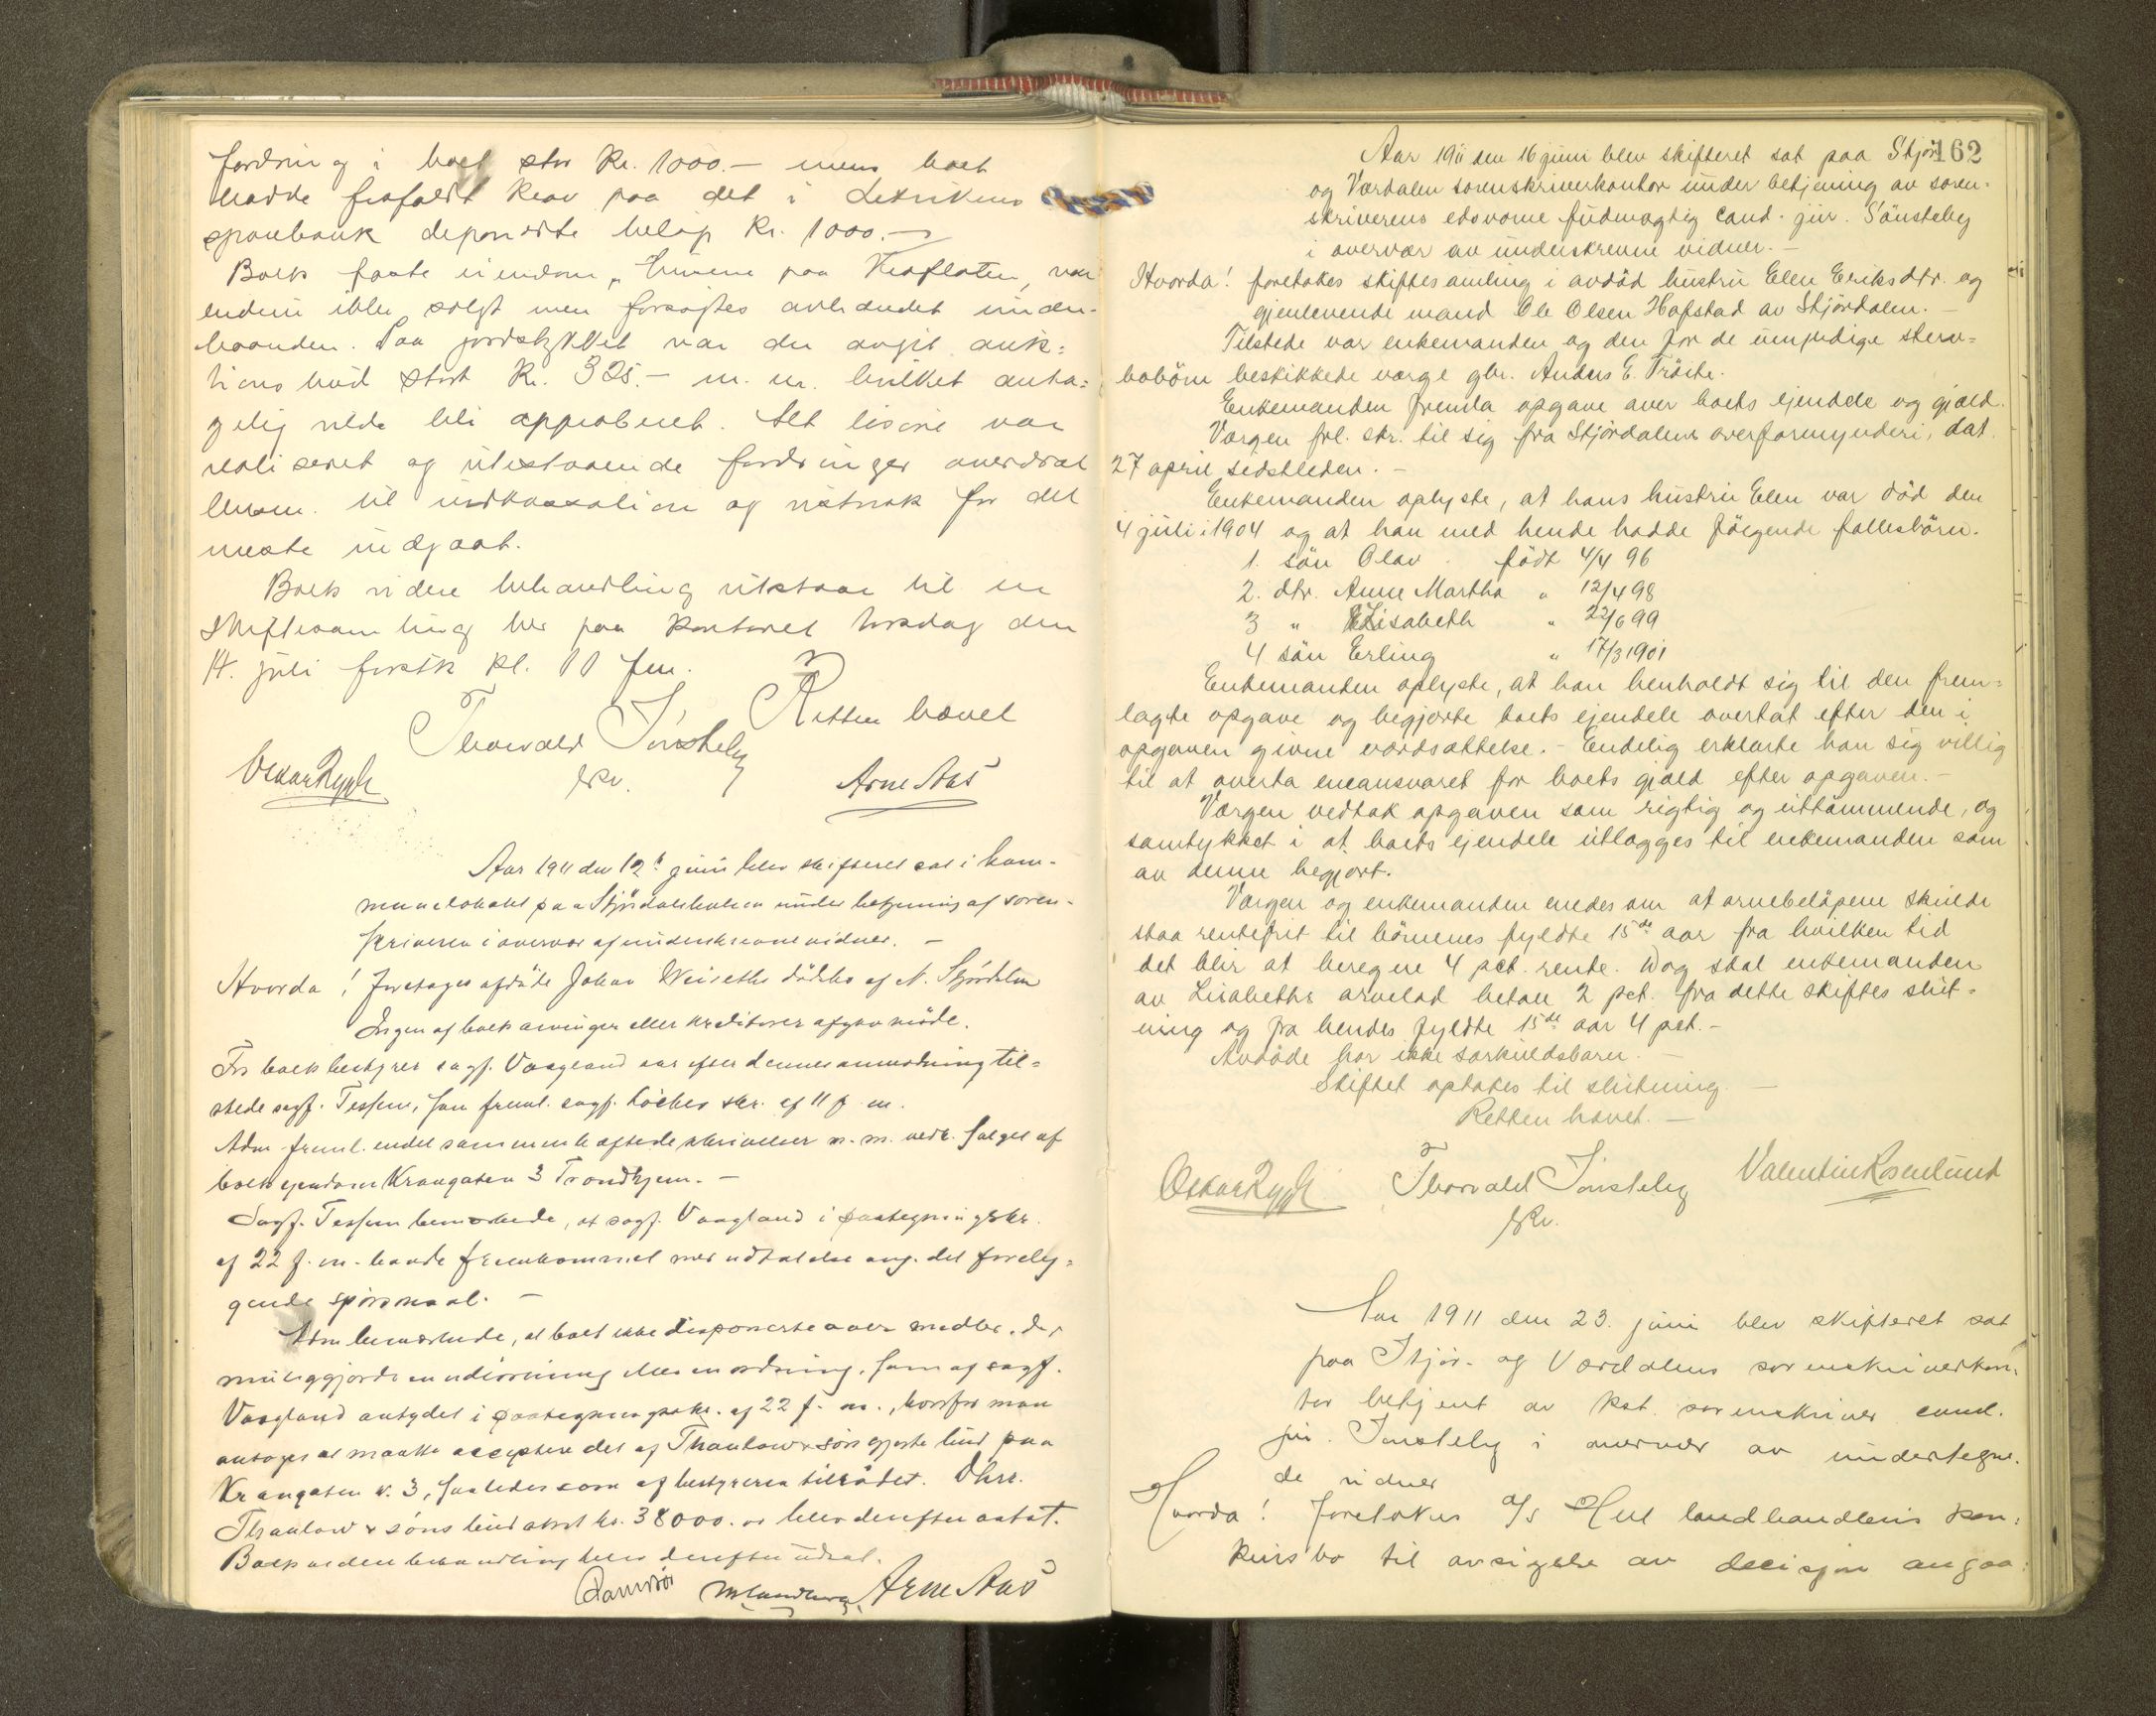 fordring i boet stor kr. 1000.- mens boet
hadde frafaldt krav paa det i Leksvikens
sparebank deponerte beløp kr. 1000.-
Boets faste eiendom, paa Kraflaten, var
endnu ikke solgt men forsøktes avhændet under-
haanden. Paa jordstykket var der avgit auk=
tions bud stort kr. 325.- m. m. hvilket anta=
gelig vilde bli approberet. Alt løsøre var
realiseret og utestaaende fordringer overdrat
lensm. til indkassation og vistnok for det
meste indgaat.
Boets videre behandling utstaar til en
skiftesamling her paa kontoret torsdag den
14. juli førstk kl. 11 fm.
Retten hævet
Thorvald Sönsteby
skr.
Oskar Rygh
Arne Aas
Aar 1911 den 12te juni blev skifteret sat i kom-
munelokalet paa Stjördalshalsen under betjening af soren-
skriveren i overvær af underskrevne vidner. -
Hvorda! foretages afdöde Johan Weiseths dödsbo af N. Stjördalen
Ingen af boets arvinger eller kreditorer afgav möde.
For boets bestyrer sagf. Vaagland var efter dennes anmodning til=
stede sagf. Tessem, som freml. sagf. skr. af 11 f. m.
Adm freml. endel sammenhæftede skrivelser m. m. vedr. salget af
boets eiendom Krangaten 3 Trondhjem. -
Sagf. Tessem bemærkede, at sagf. Vaagland i paategningsskr.
af 22 f. m. havde fremkommet med udtalelse ang. det forelig=
gende spörsmaal. -
Adm bemærkede, at boet ikke disponerte over midler, der
muliggjorde en udlösning eller en ordning, som af sagf.
Vaagland antydet i paategningsskr. af 22 f. m., hvorfor man
antoges at maatte acceptere det af Thaulow & sön gjorte bud paa
Krangaten n. 3, saaledes som af bestyreren tilrådet. Dhrr.
Thaulow & söns bud stort kr. 38000.00 blev derefter antat.
Boets videre behandling blev derefter udsat.
Arne Aas
162
Aar 1911 den 16 juni blev skifteret sat paa Stjör
og Værdalen sorenskriverkontor under betjening av soren-
skriverens edsvorne fuldmægtig cand. jur. Sönsteby
i overvær av underskrevne vidner. -
Hvorda! foretokes skiftesamling i avdöd hustru Elen Eriksdtr. og
gjenlevende mand Ole Olsen Hofstad av Stjördalen. -
Tilstede var enkemanden og den for de umyndige sterv-
bobörn beskikkede værge gbr. Anders E. Tröite.
Enkemanden fremla opgave over boets ejendele og gjæld.
Værgen frl. skr. til sig fra Stjördalens overformynderi, dat.
27 april sidstleden. -
Enkemanden oplyste, at hans hustru Elen var död den
4 juli 1904 og at han med hende hadde fölgende fællesbörn.
1. sön Olav födt 4/4 96
2. dtr. Anne Martha " 12/4 98
3 " Lisabeth " 22/6 99
4 sön Erling " 17/3 1901
Enkemanden oplyste, at han henholdt sig til den frem=
lagte opgave og begjærte boets ejendele overtat efter den i
opgaven givne værdsættelse. - Endelig erklærte han sig villig
til at overta eneansvaret for boets gjæld efter opgaven. -
Værgen vedtok opgaven som rigtig og uttömmende, og
samtykket i at boets ejendele utlægges til enkemanden som
av denne begjært.
Værgen og enkemanden enedes om at arvebelöpene skulde
staa rentefrit til börnenes fyldte 15de aar fra hvilken tid
det blir at beregne 4 pct. rente. Dog skal enkemanden
av Lisabeths arvelod betale 2 pct. fra dette skiftes slut-
ning og fra hendes fyldte 15de aar 4 pct. -
Avdöde har ikke særkuldsbarn. -
Skiftet optakes til slutning. -
Retten hævet. -
Oskar Rygh
Thorvald Sönsteby
skr.
Valentin Rosenlund
Aar 1911 den 23. juni blev skifteret sat
paa Stjør- og Værdalens sorenskriverkon=
tor betjent av kst. sorenskriver cand.
jur. Sönsteby i overvær av undertegne-
de vidner
Hvorda! foretokes a/s Hell landhandleris kon=
kursbo til avsigelse av decisjon angaa=